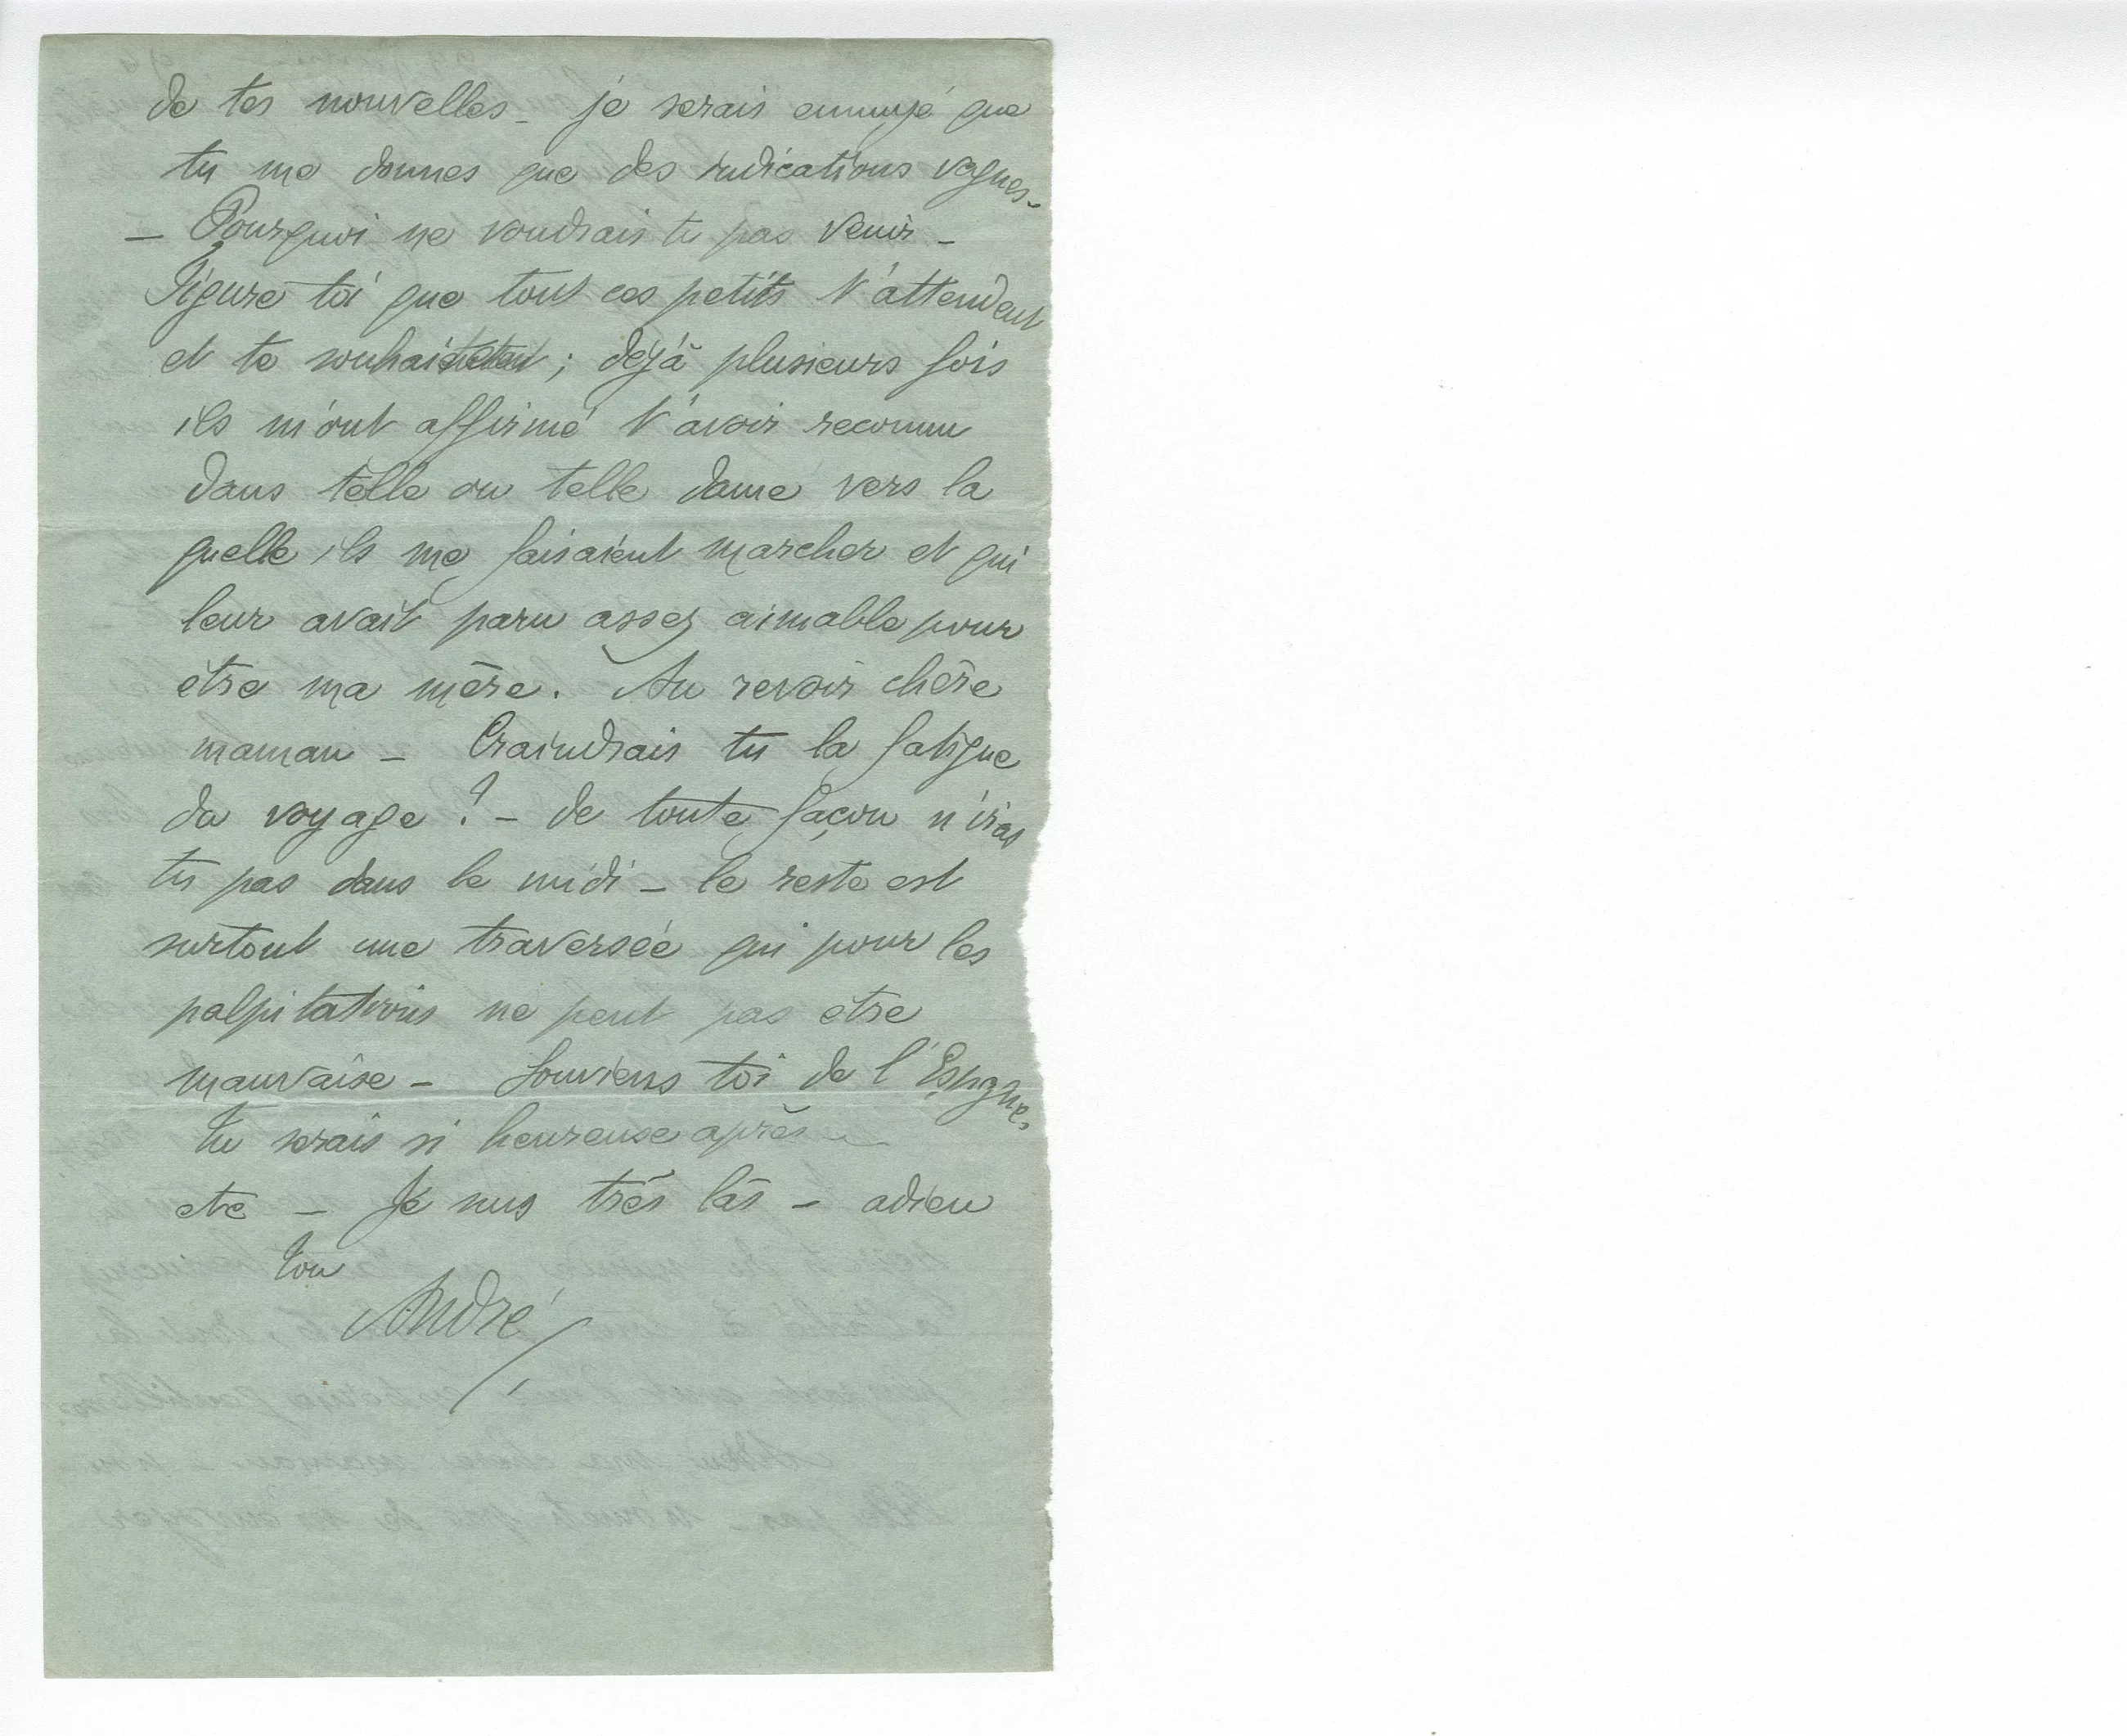 de tes nouvelles _ je serais ennuyé que
tu me donnes que des indications vagues _
_ Pourquoi ne voudrais tu pas venir _
Figure toi que tous ces petits t'attendent
et te souhaitent ; déjà plusieurs fois
ils m'ont affirmé t'avoir reconnu
dans telle ou telle dame vers la
quelle ils me faisaient marcher et qui
leur avait paru assez aimable pour
être ma mère. Au revoir chère
maman _ Craindrais tu la fatigue
du voyage ? _ de toute façon n'iras
tu pas dans le midi _ le reste est
surtout une traversée qui pour les
palpitations ne peut pas être
mauvaise _ Souviens toi de l'Espagne,
tu serais si heureuse après
etc _ Je suis très las _ adieu
ton
André